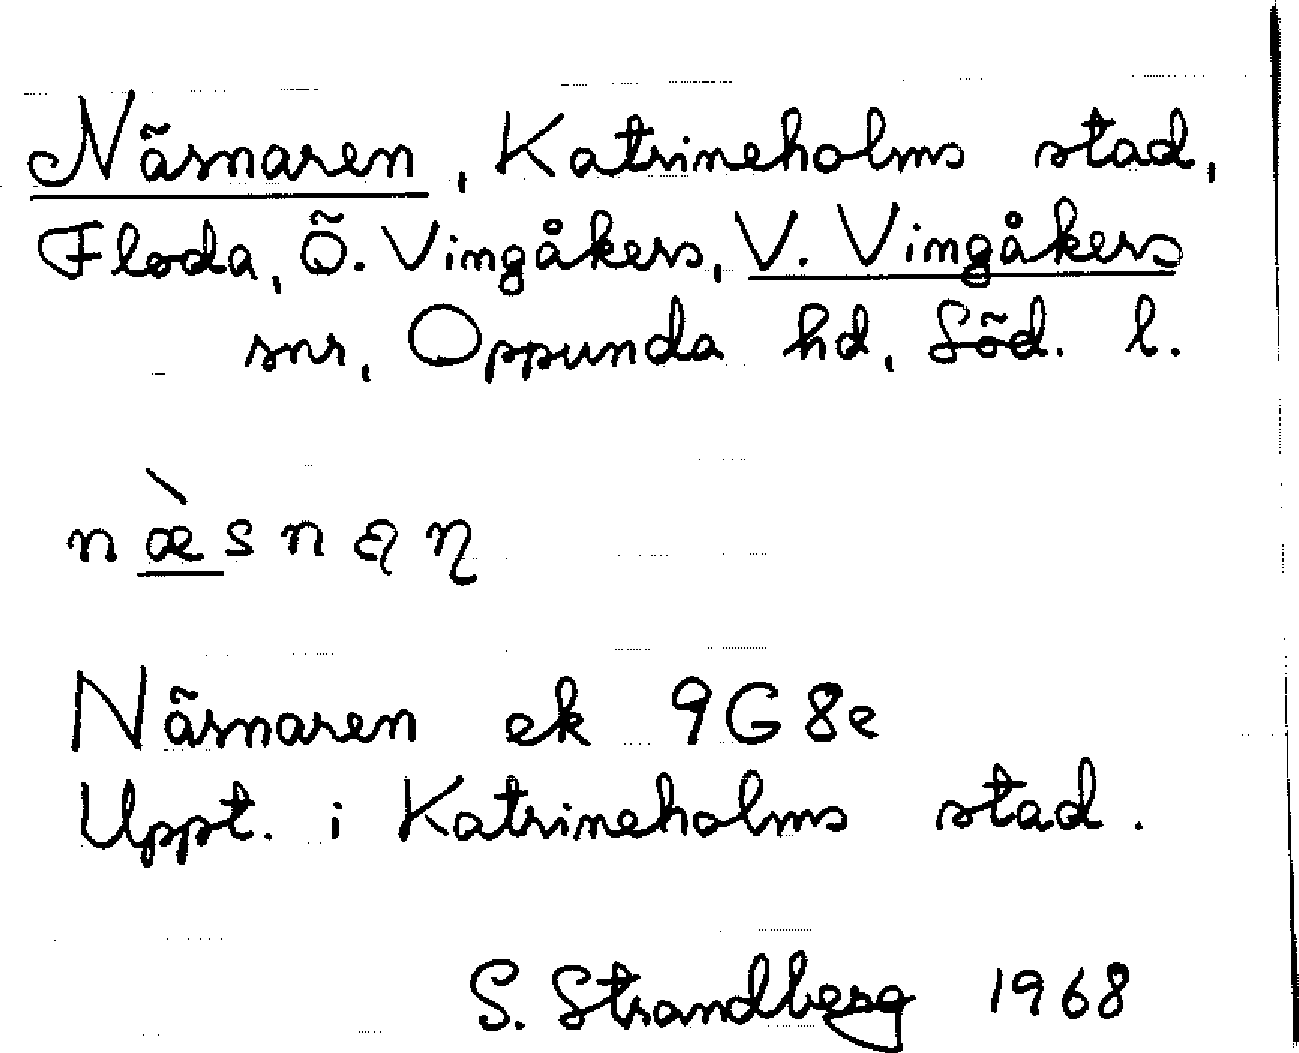 Näsnaren, Katrineholms stad,
Floda, Ö. Vingåkers, V. Vingåkers
snr, Oppunda hd, Söd. l.
Näsnaren ek 9G8e
Uppt. i Katrineholms stad.
S. Strandberg 1968